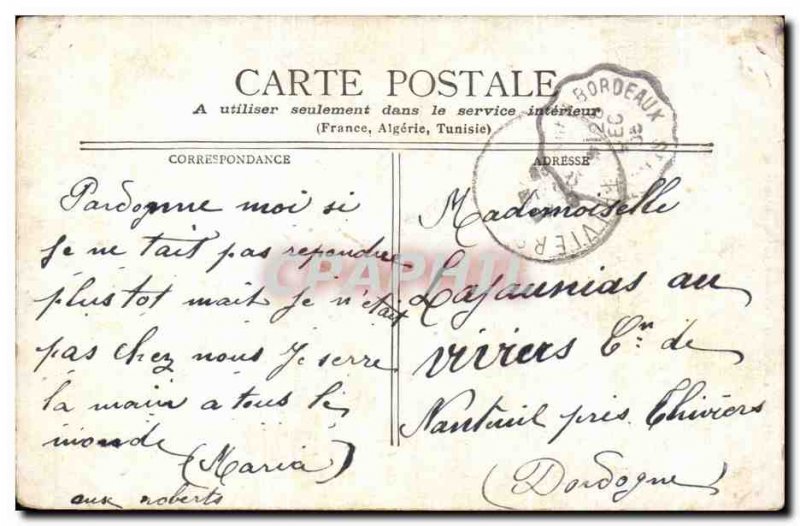 CARTE POSTALE
A utiliser seulement dans le service intérieur
(France, Algérie, Tunisie)
CORRESPONDANCE
Pardonne moi si
Je ne tait pas repondre
plus tot mait Je n'etait
pas chez nous Je serre
la main a tous le
monde
(Maria)
aux roberts
ADRESSE
Mademoiselle
Lajaunias au
viviers Cne de
Nanteuil près Thiviers
(Dordogne)
BORDEAUX
CPAPHIL